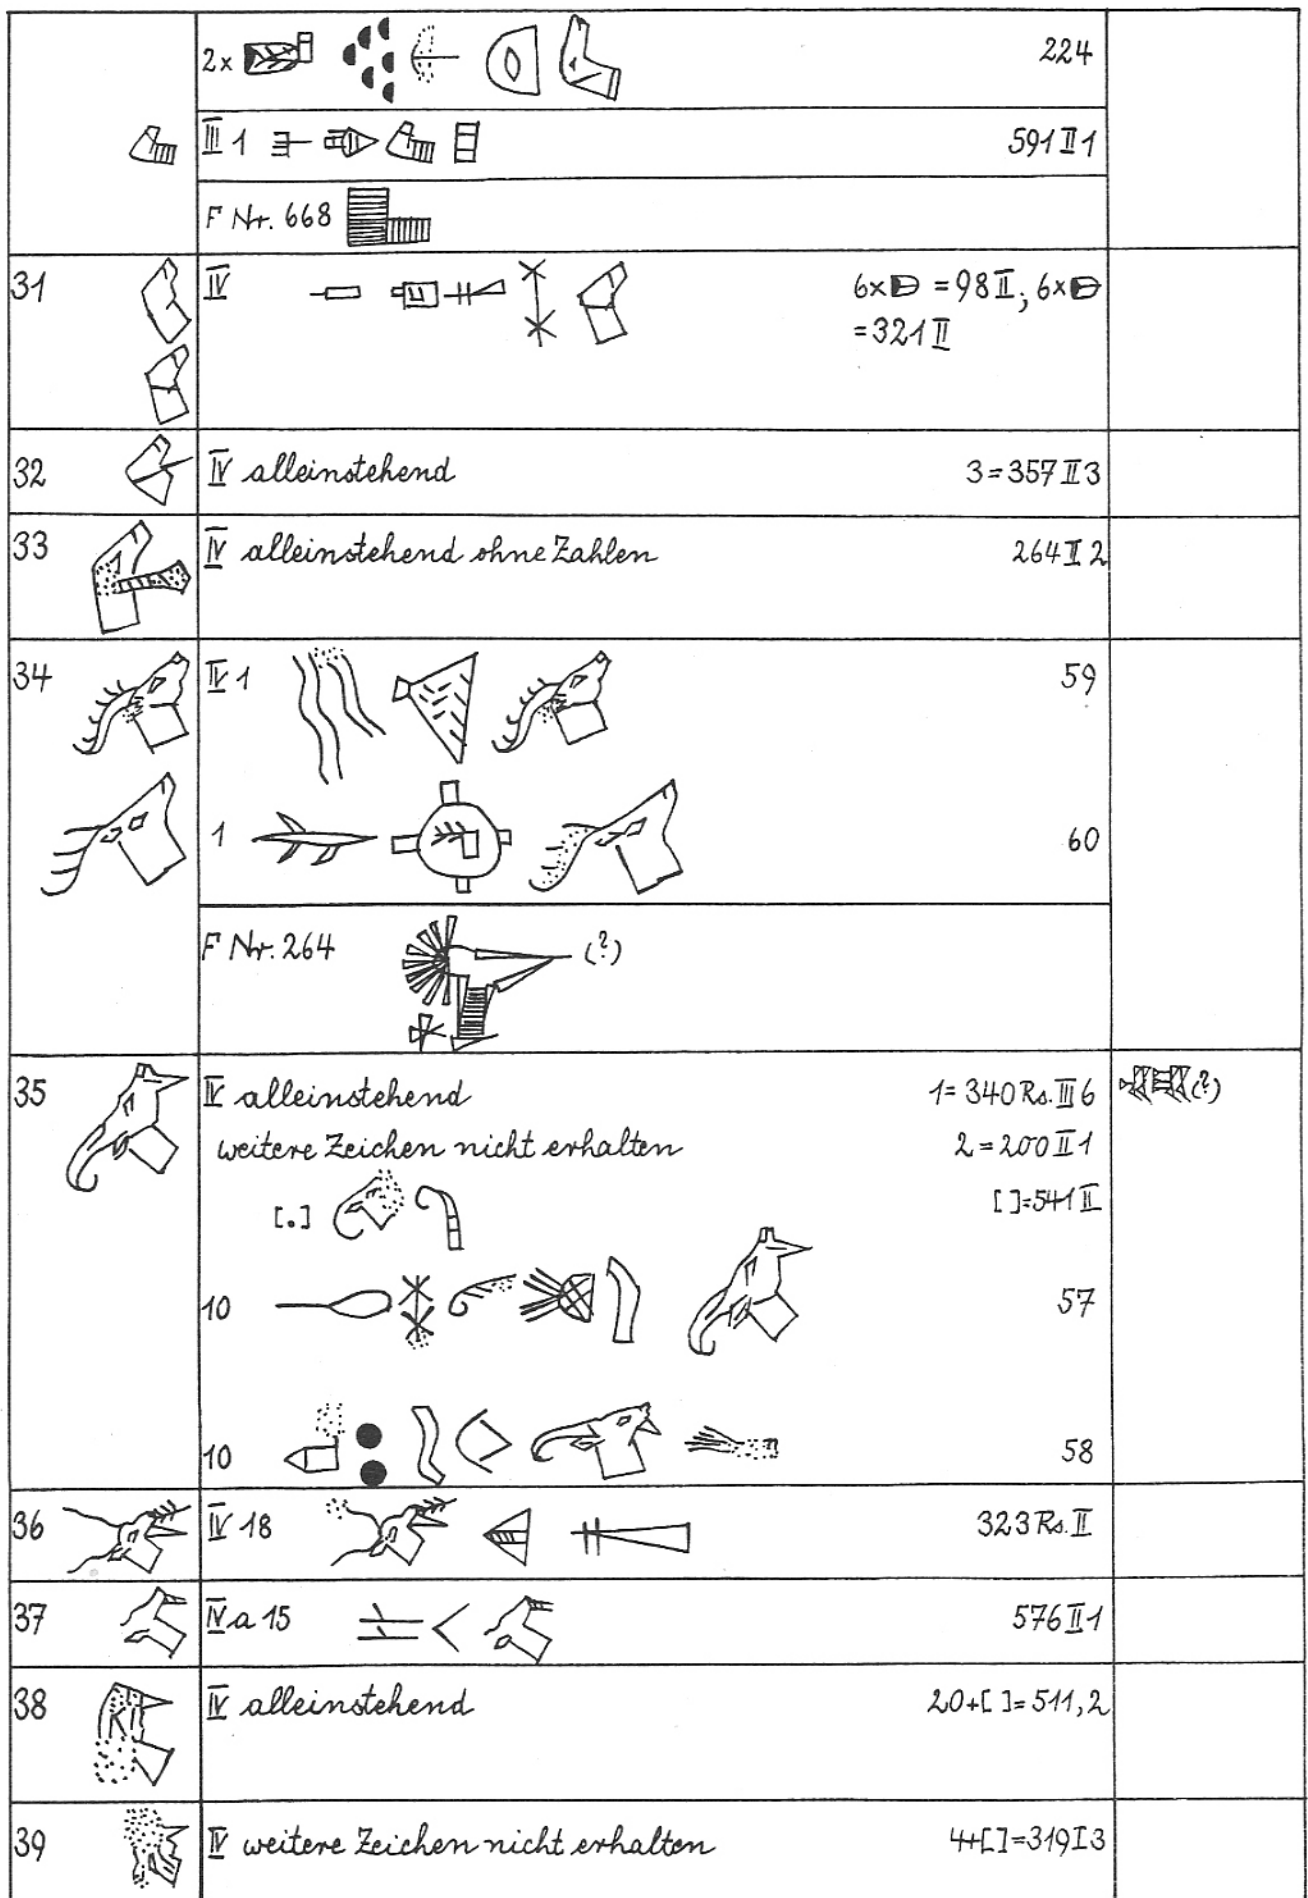 2x 224
III 1 591 II 1
F Nr. 668
31 IV 6x = 98 II; 6x
= 321 II
32 IV alleinstehend 3 = 357 II 3
33 IV alleinstehend ohne Zahlen 264 II 2
34 IV 1 59
1 60
F Nr. 264 (?)
35 IV alleinstehend 1 = 340 Rs. III 6 (?)
weitere Zeichen nicht erhalten 2 = 200 II 1
[.] [ ] = 541 II
10 57
10 58
36 IV 18 323 Rs. II
37 IV a 15 576 II 1
38 IV alleinstehend 20+[ ] = 511, 2
39 IV weitere Zeichen nicht erhalten 4+[ ] = 319 I 3